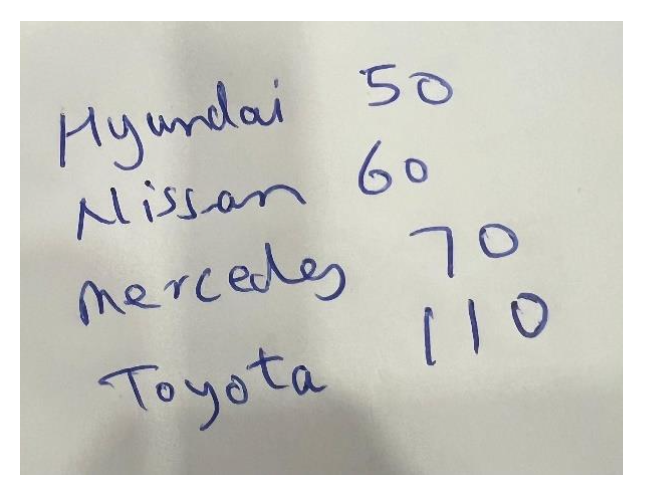 Hyundai 50
Nissan 60
Mercedes 70
Toyota 110